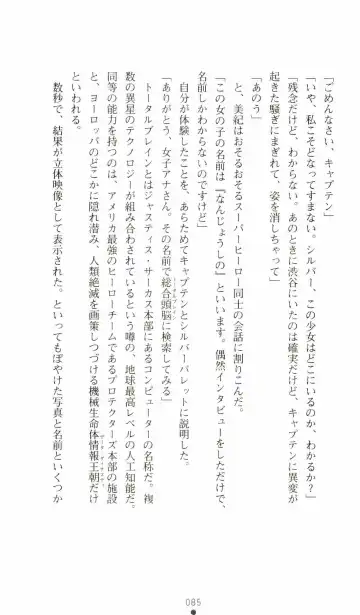 「ごめんなさい、キャプテン」
「いや、私こそどなってすまない。シルバー、この少女はどこにいるのか、わかるか？」
「残念だけど、わからない。あのときに渋谷にいたのは確実だけど、キャプテンに異変が
起きた騒ぎにまぎれて、姿を消しちゃって」
「あのう」
と、美紀はおそるおそるスーパーヒーロー同士の会話に割りこんだ。
「この女の子の名前は『なんじょうしの』といいます。偶然インタビューをしただけで、
名前しかわからないのですけど」
自分が体験したことを、あらためてキャプテンとシルバーバレットに説明した。
「ありがとう、女子アナさん。その名前で総合頭脳に検索してみる」
トータルブレインとはジャスティス・サーカス本部にあるコンピューターの名称だ。複
数の異星のテクノロジーが組み合わされているという噂の、地球最高レベルの人工知能だ。
同等の能力を持つのは、アメリカ最強のヒーローチームであるプロテクターズ本部の施設
と、ヨーロッパのどこかに隠れ潜み、人類絶滅を画策しつづける機械生命体情報王朝だけ
といわれる。
数秒で、結果が立体映像として表示された。といってもぼやけた写真と名前といくつか
085